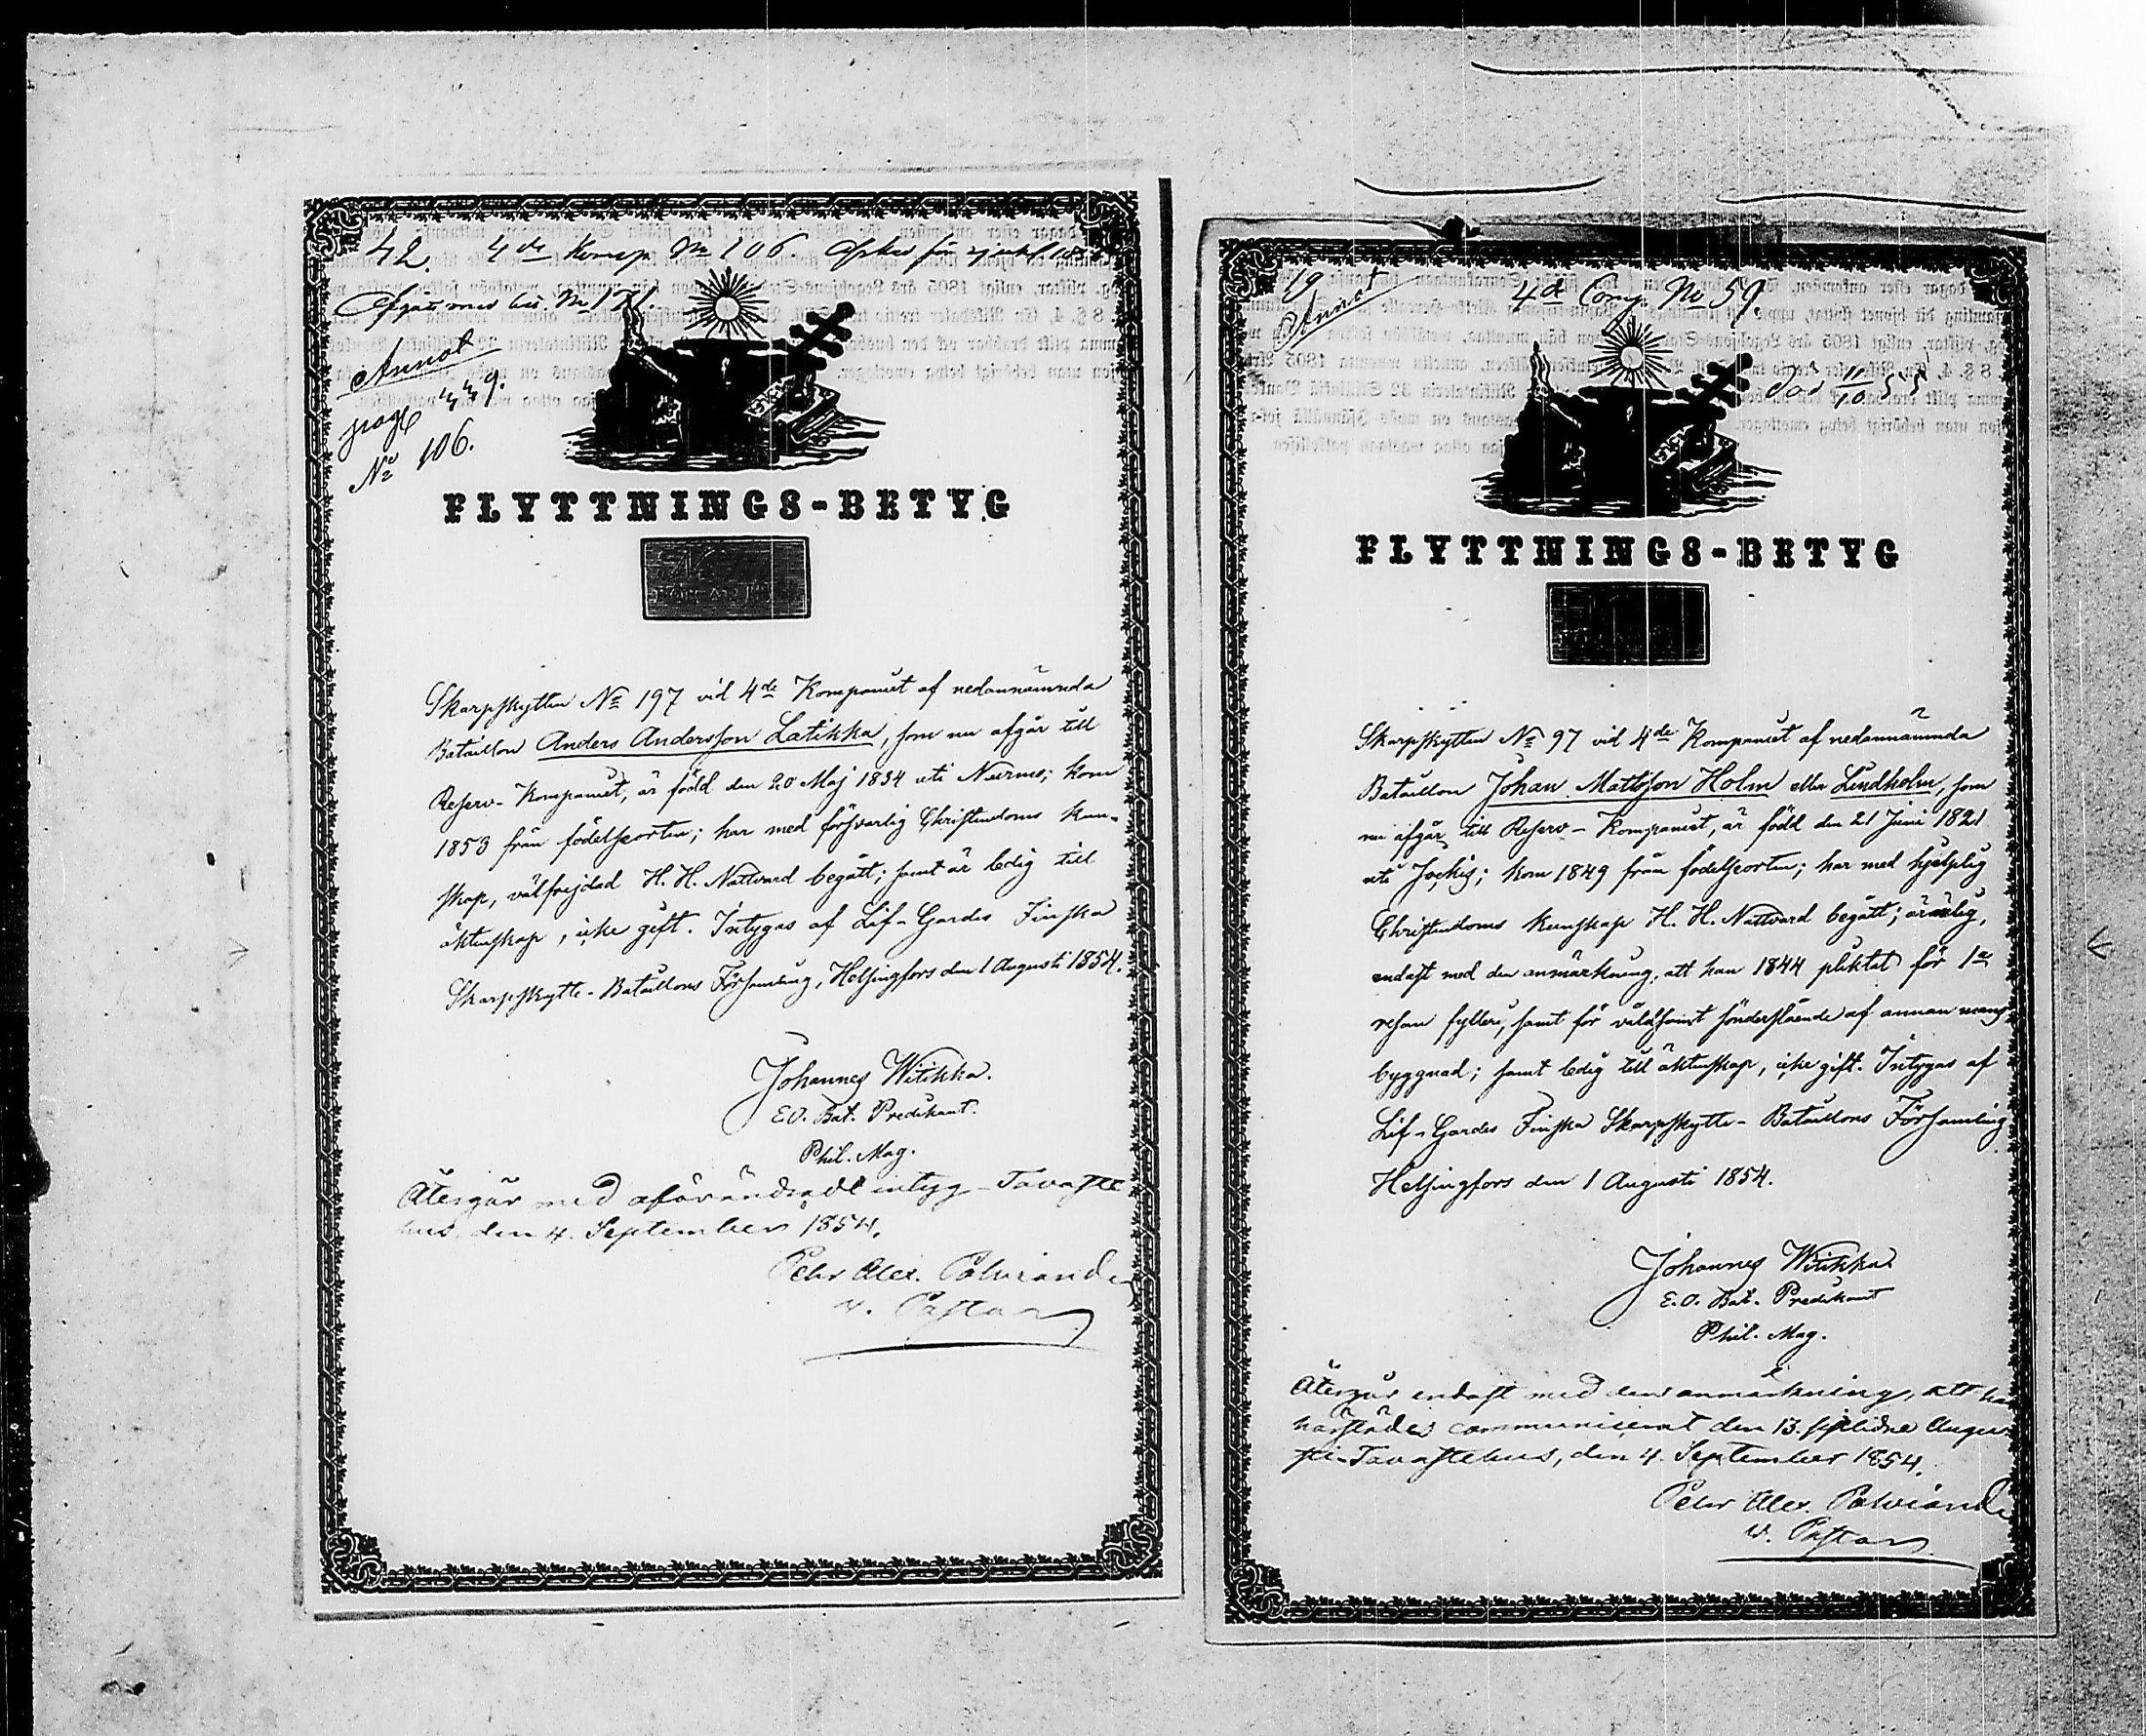 42. 4de Komp. No 106.
Afgått med bet. No 171.
Annot
pag 449.
No 106.
FLYTTNINGS-BETYG
Skarpskytten No 197 vid 4de Kompaniet af nedannämnda
Bataillon Anders Andersson Latikka, som nu afgår till
Reserv-Kompaniet, är född den 20 Maj 1834 uti Nurmo; kom
1853 från födelseorten; har med försvarlig Christendoms kun-
skap, välfrejdad H. H. Nattvard begått; samt är ledig till
äktenskap, icke gift. Intygas af Lif-Gardes Finska
Skarpskytte-Bataillons Församling, Helsingfors den 1 Augusti 1854.
Johannes Witikka.
E.O. Bat. Predikant.
Phil. Mag.
Återgår med oförändradt intyg - Tavaste
hus, den 4. September 1854.
Pehr Alex.
v. Pastor
19
Annot
4de Comp. No 59.
död 11/10 55
FLYTTNINGS-BETYG
Skarpskytten No 97 vid 4de Kompaniet af nedannämnda
Bataillon Johan Mattsson Holm eller Lindholm, som
nu afgår till Reserv-Kompaniet, är född den 21 Juni 1821
uti Jockis; kom 1849 från födelseorten; har med hjelplig
Christendoms kunskap H. H. Nattvard begått; är ärlig,
endast med den anmärkning, att han 1844 pliktat för 1a
resan fylleri, samt för våldsamt sönderslående af annan mans
byggnad; samt ledig till äktenskap, icke gift. Intygas af
Lif-Gardes Finska Skarpskytte-Bataillons Församling
Helsingfors den 1 Augusti 1854.
Johannes Witikka
E.O. Bat. Predikant
Phil. Mag.
Återgår endast med den anmärkning, att han
härstädes communicerat den 13. sistlidne Augu-
sti - Tavastehus, den 4. September 1854.
Pehr Alex.
v. Pastor